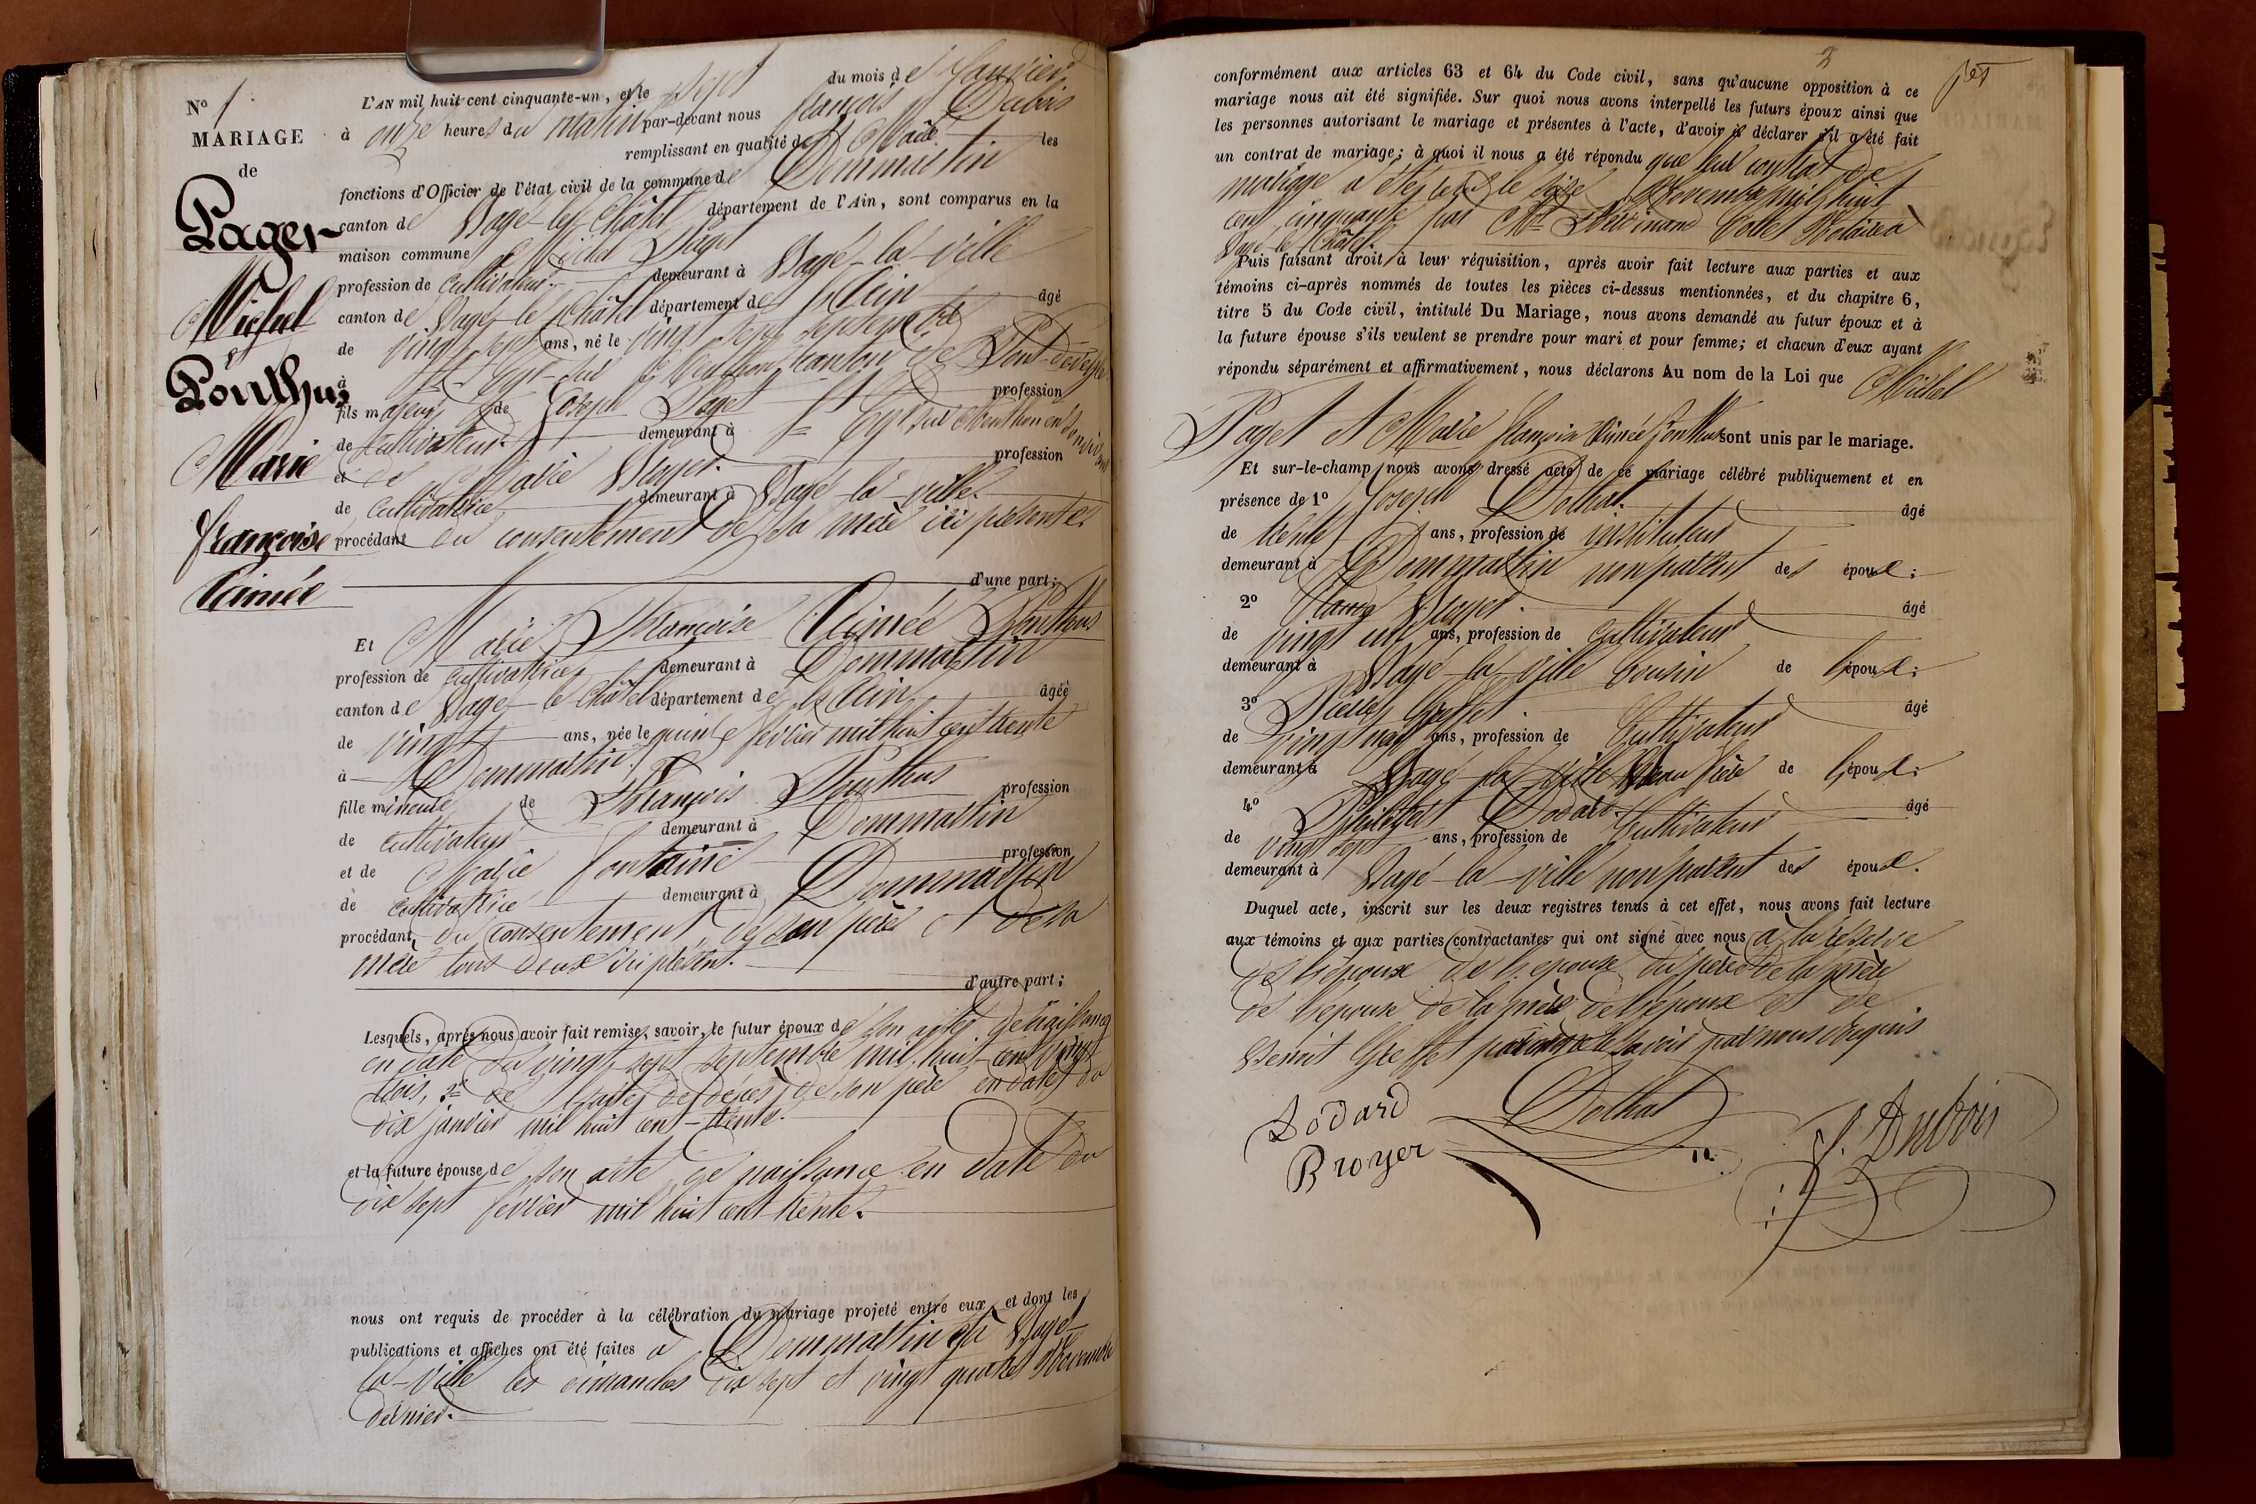 N° 1
MARIAGE
de
Pager
Michel
et
Ponthus
Marie
françoise
Aimée
L'AN mil huit cent cinquante-un, et le sept du mois de Janvier
à onze heures du matin par-devant nous françois Dubois
remplissant en qualité de Maire les
fonctions d'Officier de l'état civil de la commune de Dommartin
canton de Bagé-le-Châtel département de l'Ain, sont comparus en la
maison commune Michel Paget
profession de cultivateur demeurant à Bagé-la-Ville
canton de Bagé-le-Châtel département de l'Ain âgé
de vingt sept ans, né le vingt sept septembre
à St Cyr-sur Menthon canton de Pont-de-veyle
fils majeur de Joseph Paget profession
de cultivateur demeurant à St Cyr sur Menthon en son vivant
et de Marie Broyer profession
de cultivatrice demeurant à Bagé-la-ville
procédant du consentement de sa mère ici présente
d'une part;
Et Marie Françoise Aimée Ponthus
profession de cultivatrice demeurant à Dommartin
canton de Bagé-le-Châtel département de l'Ain âgée
de vingt ans, née le février mil huit cent trente
à Dommartin
fille mineure de François Ponthus profession
de cultivateur demeurant à Dommartin
et de Marie fontaine profession
de cultivatrice demeurant à Dommartin
procédant du consentement de son père et de sa
mère tous deux ici présents.
d'autre part;
Lesquels, après nous avoir fait remise, savoir, le futur époux de son acte de naissance
en date du vingt sept septembre mil huit cent vingt
trois, 2° de l'acte de décès de son père en date du
dix janvier mil huit cent-trente.
et la future épouse de son acte de naissance en date du
dix sept février mil huit cent trente.
nous ont requis de procéder à la célébration du mariage projeté entre eux, et dont les
publications et affiches ont été faites à Dommartin et à Bagé-
la-Ville les dimanches dix sept et vingt quatre Novembre
dernier.
2
conformément aux articles 63 et 64 du Code civil, sans qu'aucune opposition à ce
mariage nous ait été signifiée. Sur quoi nous avons interpellé les futurs époux ainsi que
les personnes autorisant le mariage et présentes à l'acte, d'avoir à déclarer s'il a été fait
un contrat de mariage; à quoi il nous a été répondu que leur contrat de
mariage a été reçu le seize Novembre mil huit
cent cinquante par Me Notaire à
Bagé-le-Châtel.
Puis faisant droit à leur réquisition, après avoir fait lecture aux parties et aux
témoins ci-après nommés de toutes les pièces ci-dessus mentionnées, et du chapitre 6,
titre 5 du Code civil, intitulé Du Mariage, nous avons demandé au futur époux et à
la future épouse s'ils veulent se prendre pour mari et pour femme; et chacun d'eux ayant
répondu séparément et affirmativement, nous déclarons Au nom de la Loi que Michel
Paget et Marie françoise Aimée Ponthus sont unis par le mariage.
Et sur-le-champ nous avons dressé acte de ce mariage célébré publiquement et en
présence de 1° Joseph Dothal âgé
de trente ans, profession de instituteur
demeurant à Dommartin non parent des époux;
2° Broyer âgé
de vingt un ans, profession de cultivateur
demeurant à Bagé-la-Ville cousin de l'époux;
3° Greffet âgé
de vingt neuf ans, profession de Cultivateur
demeurant à Bagé-la-ville Beau frère de l'époux;
4° Philibert Dodard âgé
de vingt sept ans, profession de Cultivateur
demeurant à Bagé-la-ville non parent des époux.
Duquel acte, inscrit sur les deux registres tenus à cet effet, nous avons fait lecture
aux témoins et aux parties contractantes qui ont signé avec nous à la réserve
de l'époux de l'épouse du père de la mère
de l'épouse de la mère de l'époux et de
Benoit Greffet pour ne le savoir par nous requis
Dodard
Dothal
J. Dubois
Broyer